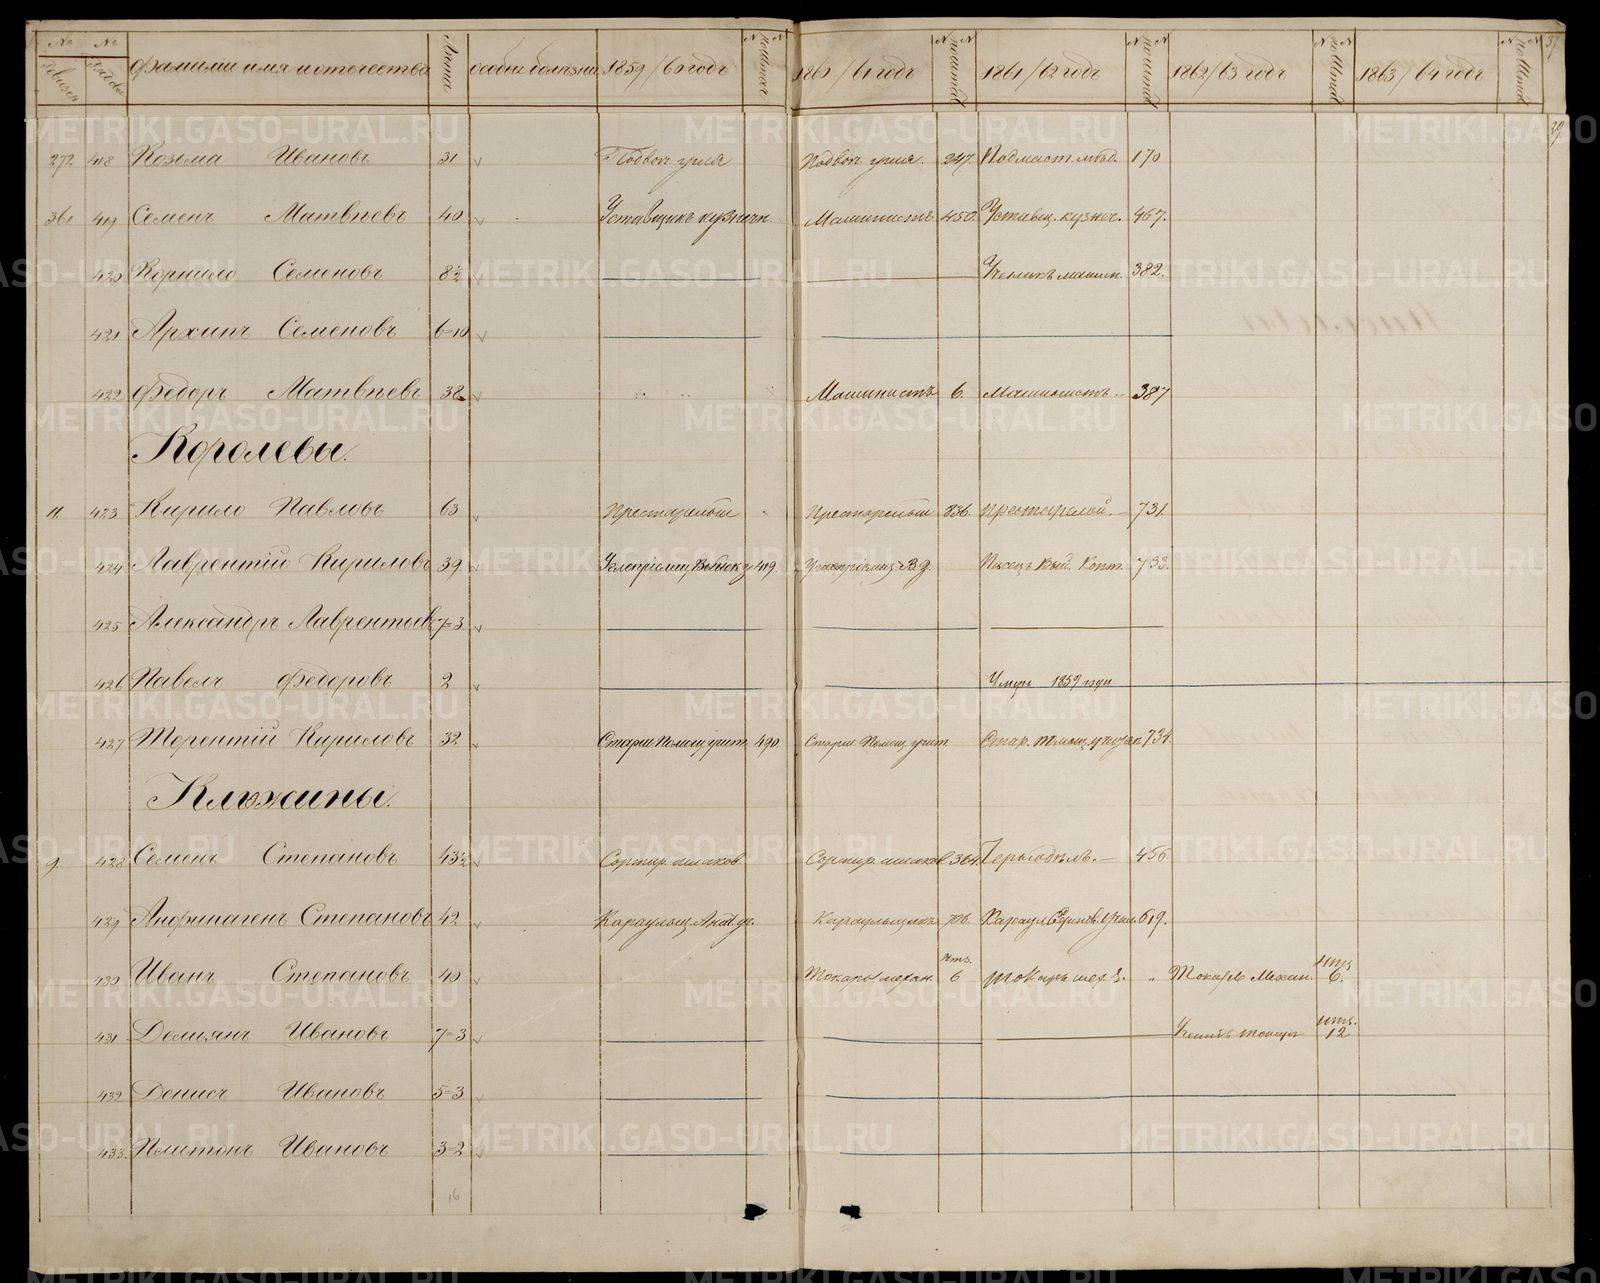 № ревизск № рядовы фамилии имя и отчества Лета особыя болезни 1859/60 годъ № пошта № 1860/61 годъ № поштат № 1861/62 годъ № поштат № 1862/63 годъ № поштат № 1863/64 годъ № поштат № 37
39
272 418 Козьма Ивановъ 31 Подвоз. угля Подвоз. угля 247. Подмаст. 170
361 419 Семенъ Матвѣевъ 40 Уставщикъ кузничн. Машинистъ 450. Уставщ. кузнеч. 467.
420 Корнило Семеновъ 8½ Ученикъ машин. 382.
421 Архипъ Семеновъ 6-10
422 Федоръ Матвѣевъ 38 Машинистъ 6. Машинистъ 387
Королевы.
11. 423 Кирило Павловъ 63 Престарелый Престарелый 836. Престарелой. 731
424 Лаврентій Кириловъ 39 419. Писецъ Конт. 733.
425 Александръ Лаврентьевъ 7-3
426 Павелъ Федоровъ 2 Умеръ 1859 года
427 Терентій Кириловъ 32 Старш. Помощ. учит. 490. Старш. Помощ. учит. Стар. помощ. 734.
Клюжины.
9. 428 Семенъ Степановъ 43½ Сортир. шлаков Сортир. шлаков 364. 456
429 Анфиногенъ Степановъ 42 Караульщ. Караульщикъ 706. Караул. 619.
430 Иванъ Степановъ 40 Токарь механ. шт. 6 Токарь мех. Токарь Механ. шт. 6.
431 Демьянъ Ивановъ 7-3 Ученикъ токаря шт. 12
432 Денисъ Ивановъ 5-3
433. Платонъ Ивановъ 3-2
16
METRIKI.GASO-URAL.RU